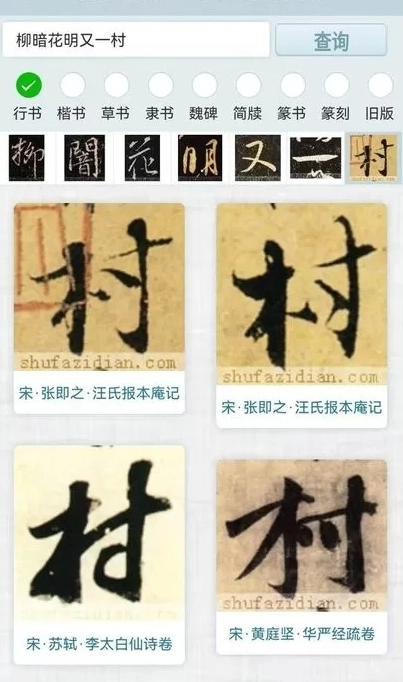 柳暗花明又一村
查询
行书 楷书 草书 隶书 魏碑 简牍 篆书 篆刻 旧版
柳 闇 花 明 又 一 村
村 村
shufazidian.com
宋·张即之·汪氏报本庵记
shufazidian.com
宋·张即之·汪氏报本庵记
村 村
宋·苏轼·李太白仙诗卷
shufazidian.com
宋·黄庭坚·华严经疏卷